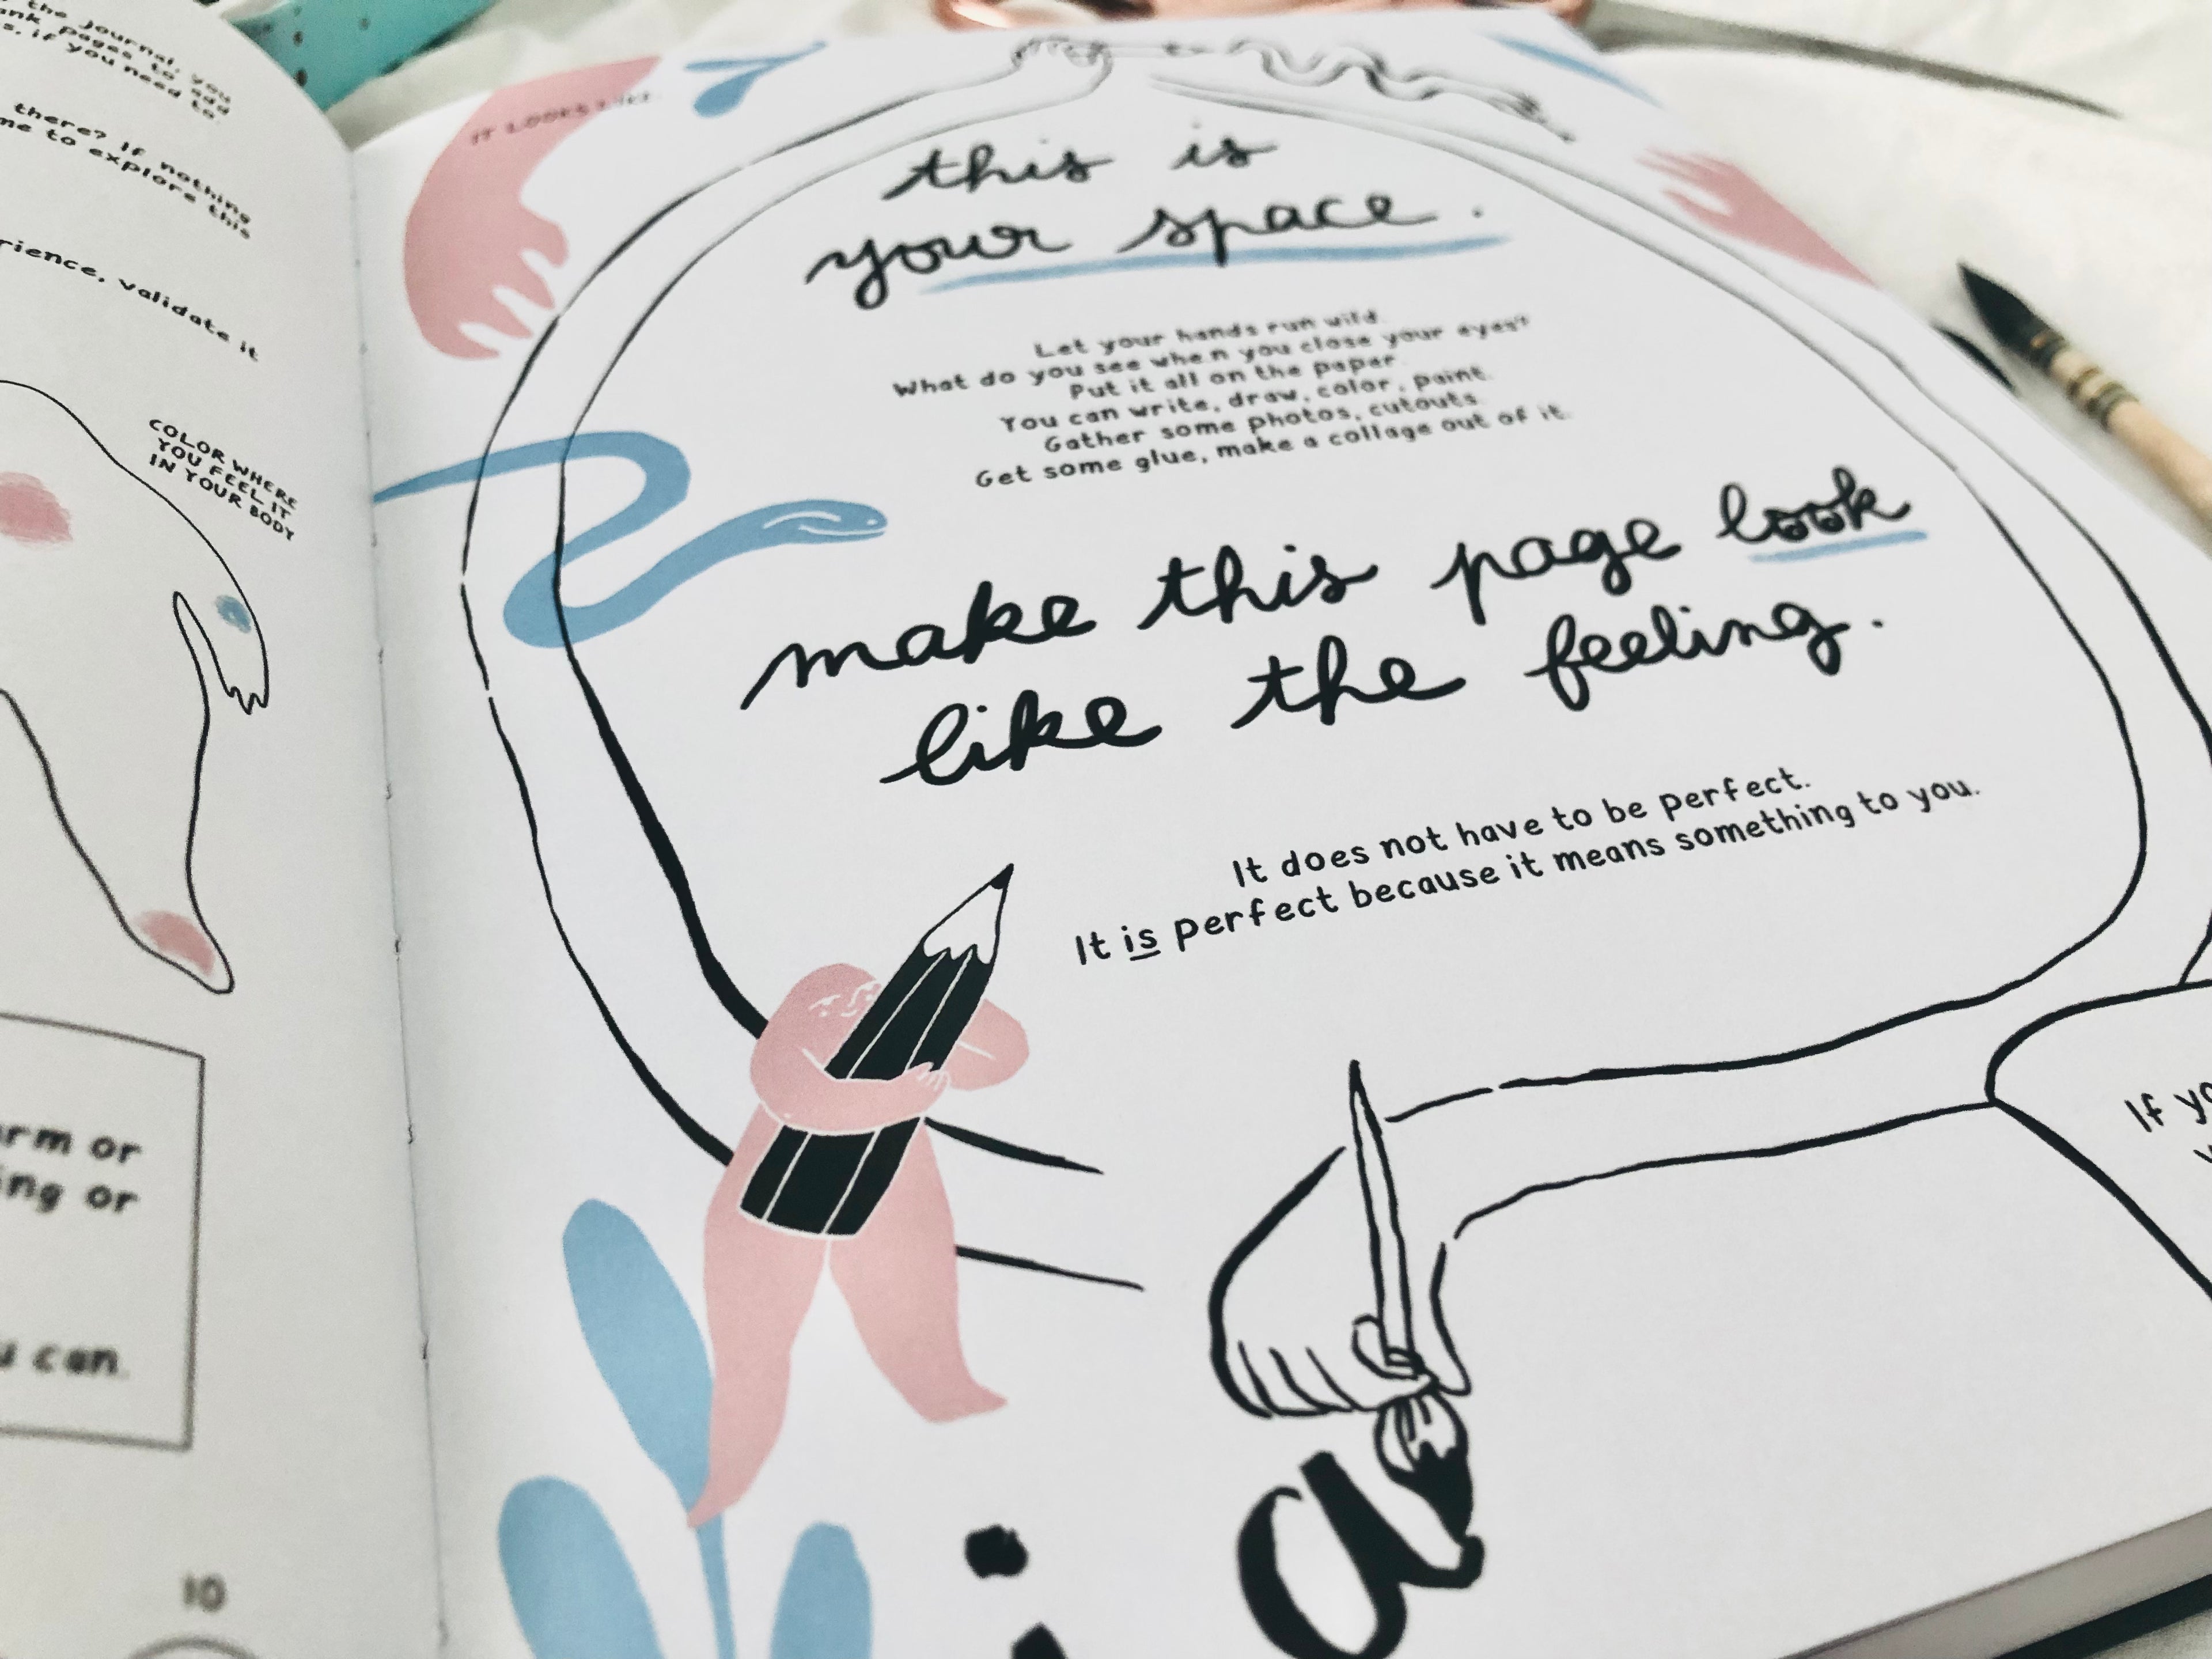 the journal, you
pages to add
s, if you need to.
there? If nothing
me to explore this
rience, validate it
COLOR WHERE
YOU FEEL IT
IN YOUR BODY
rm or
ing or
u can.
10
IT LOOKS LIKE
this is
your space.
Let your hands run wild.
What do you see when you close your eyes?
Put it all on the paper.
You can write, draw, color, paint.
Gather some photos, cutouts.
Get some glue, make a collage out of it.
make this page look
like the feeling.
It does not have to be perfect.
It is perfect because it means something to you.
If yo
a